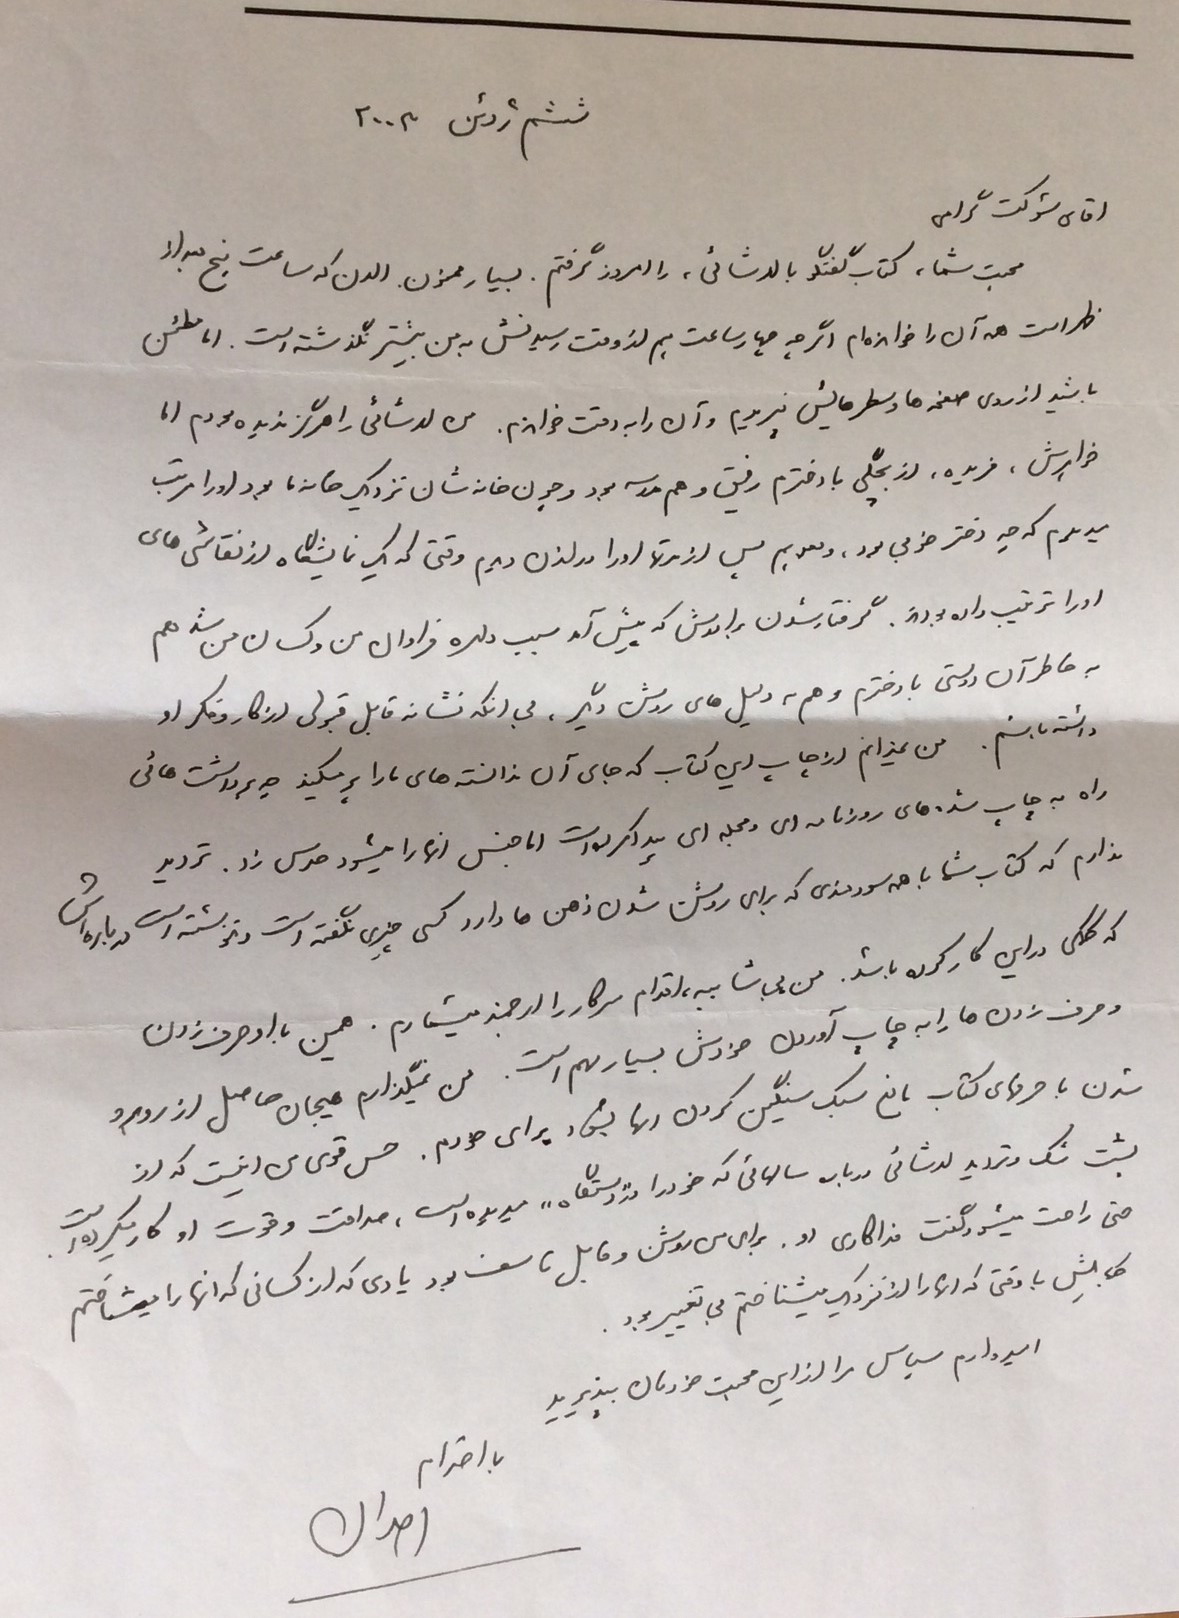 ششم ژوئن ۲۰۰۲
اقای شوکت گرامی
محبت شما، کتاب گفتگو با لاشائی، را امروز گرفتم. بسیار ممنون. الان که ساعت پنج بعداز
ظهر است همه آن را خوانده‌ام اگرچه چهار ساعت هم از وقت رسیدنش به من بیشتر نگذشته است. اما مطمئن
باشید از روی صفحه‌ها و سطرهایش نپریدم و آن را به دقت خواندم. من لاشائی را هرگز ندیده بودم اما
خواهرش، فریده، از بچگی با دخترم رفیق و هم مدرسه بود و چون خانه‌شان نزدیک خانه ما بود او را مرتب
میدیدم که چه دختر خوبی بود، و بعد هم پس از مدتها او را در لندن دیدم وقتی که یک نمایشگاه از نقاشی های
او را ترتیب داده بودند. گرفتار شدن برادرش که پیش آمد سبب دلهره فراوان من و کسان من شد هم
به خاطر آن دوستی با دخترم و هم به دلیل های روشن دیگر، بی آنکه نشانه قابل قبولی از کار و فکر او
داشته باشم. من نمیدانم از چاپ این کتاب که جای آن ندانسته های ما را پر میکند چه برداشت هائی
راه به چاپ شده‌های روزنامه ای و مجله ای پیدا کرده است اما جنس انها را میشود حدس زد. تردید
ندارم که کتاب شما با همه سودمندی که برای روشن شدن ذهن ها دارد کسی چیزی نگفته است و ننوشته است درباره‌اش
که کمکی در این کار کرده باشد. من بی شائبه، اقدام سرکار را ارجمند میشمارم. همین با او حرف زدن
و حرف زدن ها را به چاپ آوردن خودش بسیار مهم است. من نمیگذارم هیجان حاصل از روبرو
شدن با حرفهای کتاب مانع سبک سنگین کردن انها بشود برای خودم. حس قوی من اینست که از
پشت شک و تردید لاشائی درباره سالهائی که خود را در «دستگاه» میدیده است، صداقت و قوت او کار میکرده است.
حتی راحت میشود گفت فداکاری او. برای من روشن و قابل تاسف بود یادی که از کسانی که انها را میشناختم
با وقتی که انها را از نزدیک میشناختم بی تغییر بود.
امیدوارم سپاس مرا از این محبت خودتان بپذیرید
با احترام